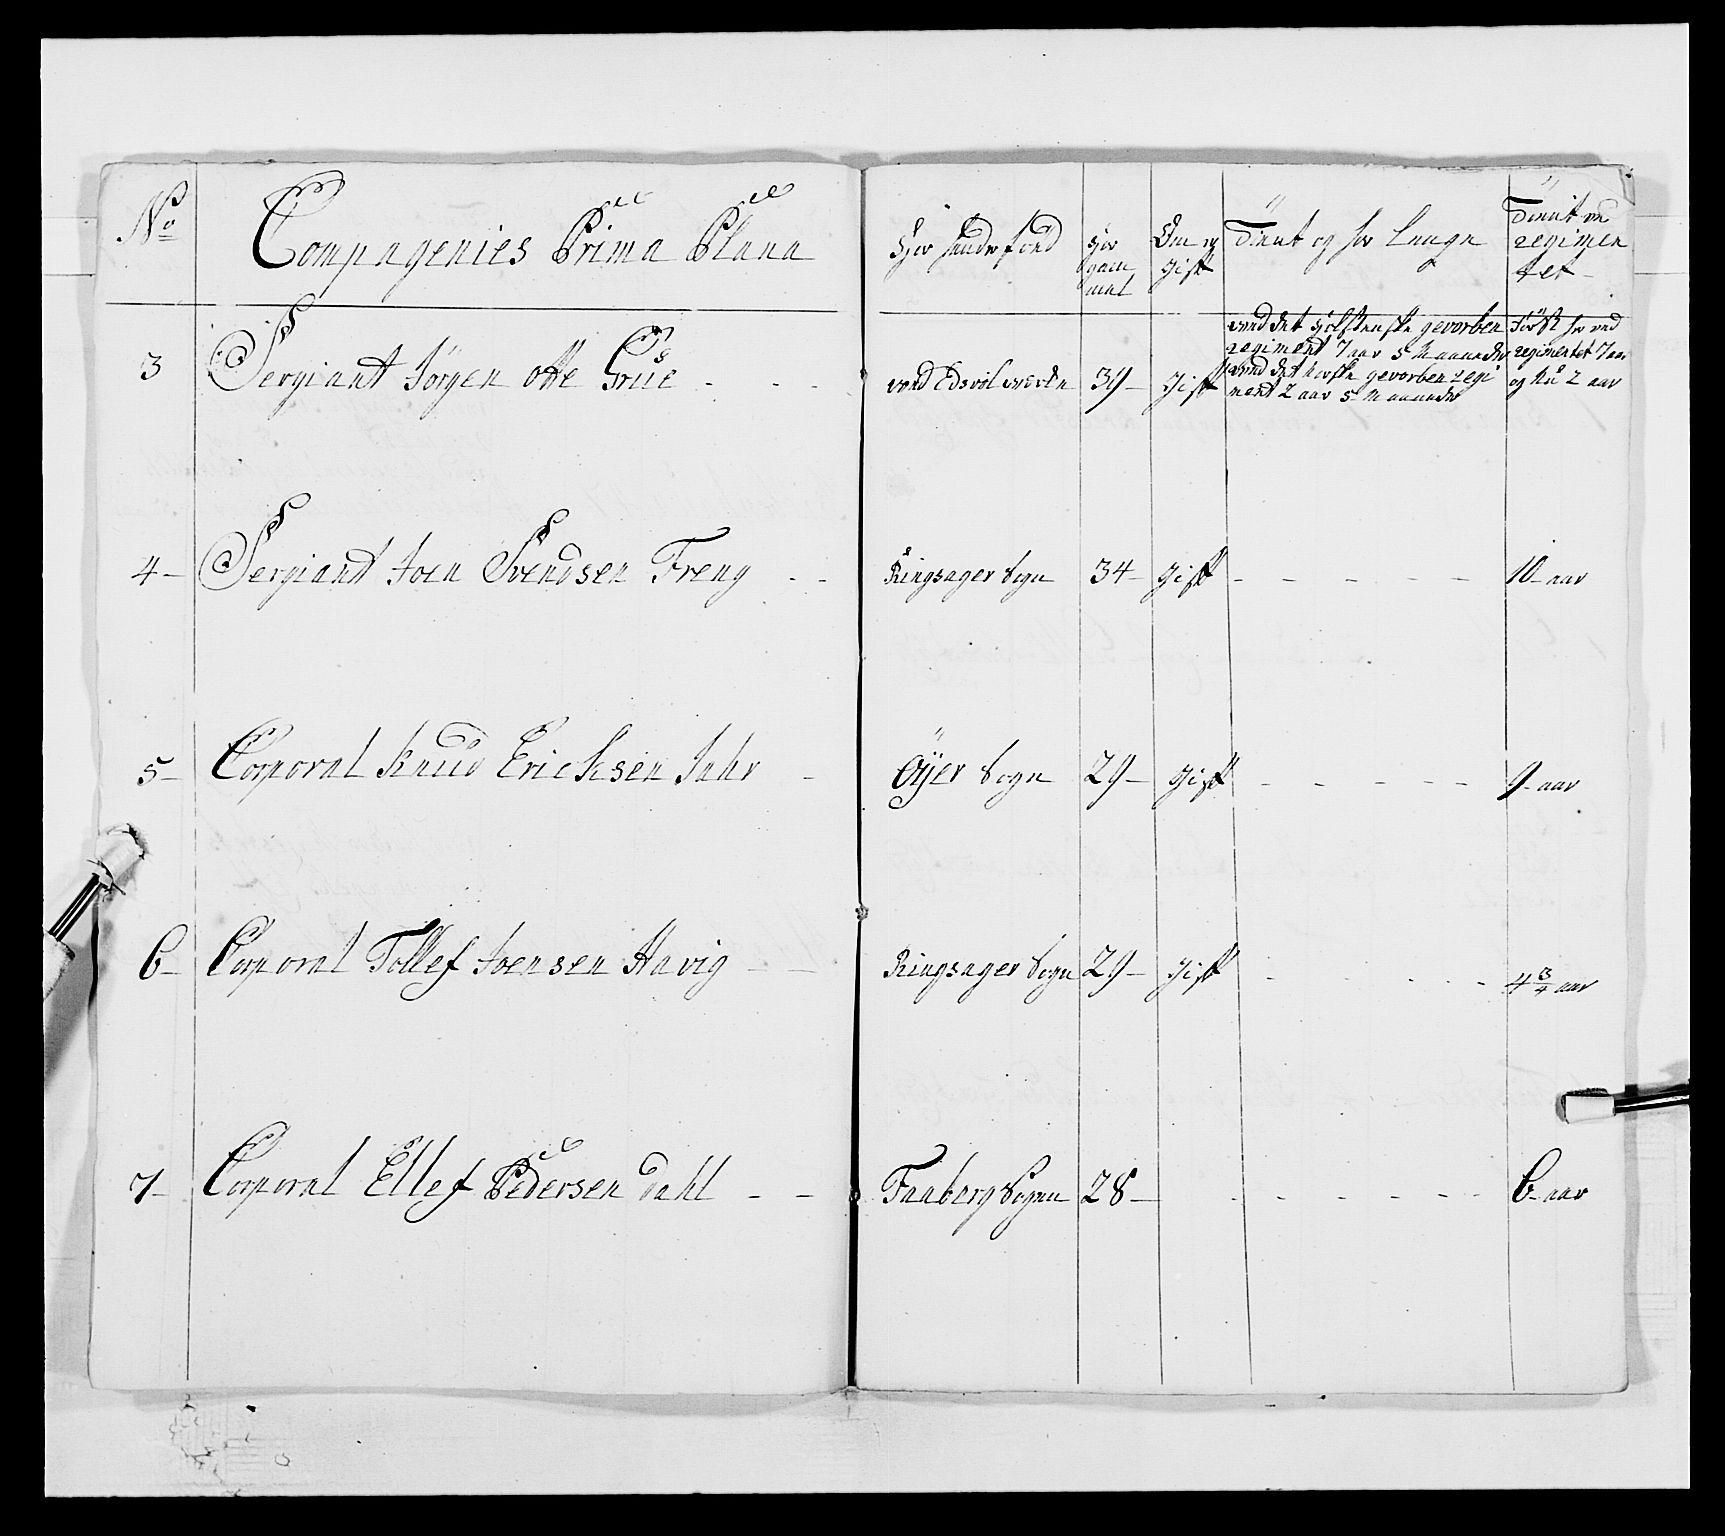 No Compagenies Prima Plana Hvor föd Hvor gam mel Om og gift Tient og hvor Lenge Tient ved regimen tet
3 Sergiant Jörgen Otte Grüe - - - ved Edsvol 39 - gift
ved det gevorben regiment 7 aar 5 Maaneder
ved det norske gevorben regi ment 2 aar 5 Maaneder
Först ved regimentet 7 aar og nu 2 aar
4 - Sergiant Joen Svendsen Freng - - Ringsager Sogn 34 - gift - - - - - 10 - aar
5 - Corporal Knud Ericksen Jahr - Öÿer Sogn 29 - gift - - - - - 9 - aar
6 - Corporal Tollef Joensen Havig - - Ringsager Sogn 29 - gift - - - - 4 3/4 aar
7 - Corporal Ellef Pedersen Dahl - - Faaberg Sogn 28 - - - - - - 6 - aar